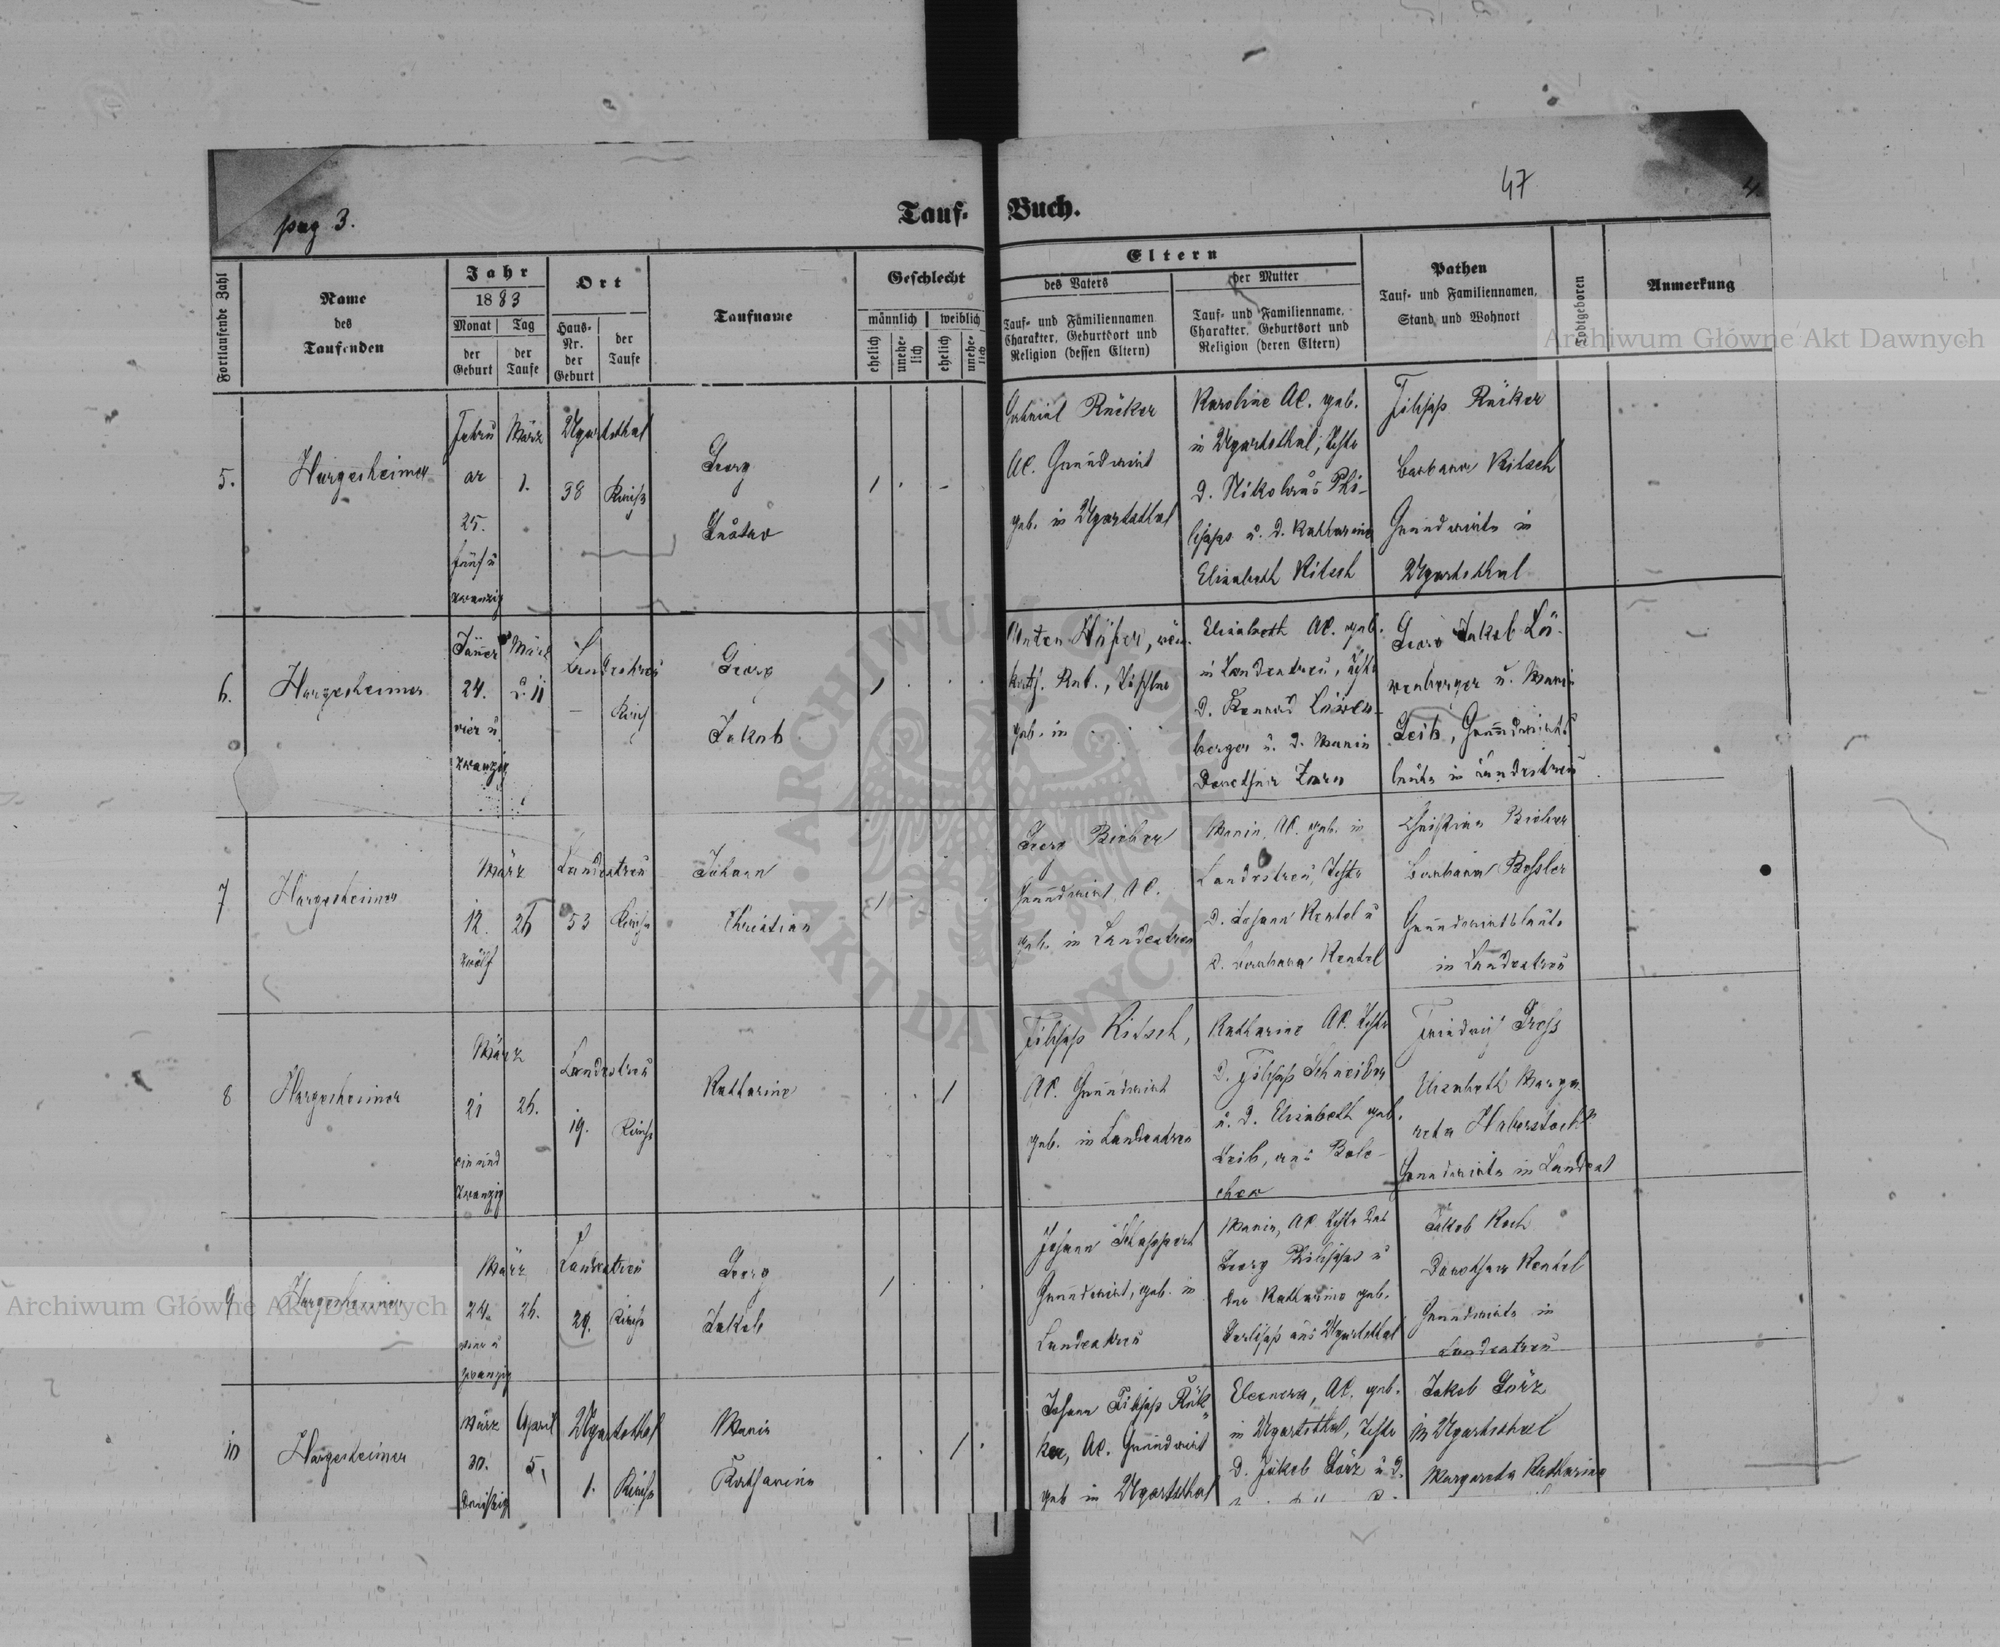 47
4.
pag 3.
Tauf- Buch.
Fortlaufende Zahl
Name
des
Taufenden
Jahr
1883
Monat
Tag
der
Geburt
der
Taufe
Ort
Haus-
Nr.
der
Geburt
der
Taufe
Taufname
Geschlecht
männlich
weiblich
ehelich
unehe-
lich
ehelich
unehe-
lich
Eltern
des Vaters
Tauf- und Familiennamen
Charakter, Geburtsort und
Religion (dessen Eltern)
der Mutter
Tauf- und Familienname,
Charakter, Geburtsort und
Religion (deren Eltern)
Pathen
Tauf- und Familiennamen,
Stand und Wohnort
Todtgeboren
Anmerkung
Archiwum Główne Akt Dawnych
5.
Hargesheimer
Febru
ar
25.
fünf u
zwanzig
März
1.
Ugartsthal
38
Kirche
Georg
Gustav
1
Gabriel Rücker
AC. Grundwirt
geb. in Ugartsthal
Karoline AC. geb.
in Ugartsthal, Tochter
d. Nikolaus Phi-
lipps u. d. Katharine
Elisabeth Kitsch
Filipp Rücker
Barbara Kitsch
Grundwirte in
Ugartsthal
6.
Hargesheimer
Jänner
24.
vier u.
zwanzig
März
11
Landestreu
Kirche
Georg
Jakob
1
Anton Häfer, röm.
kath. Rel.,
geb. in
Elisabeth AC. geb.
in Landestreu, Tochter
d. Konrad Löwen-
berger u. d. Maria
Dorothea
Georg Jakob Lö-
wenberger u. Maria
Leib, Grundwirts
leute in Landestreu
7
Hargesheimer
März
12.
zwölf
26
Landestreu
53
Kirche
Johann
Christian
1
Georg Bieber
Grundwirt AC.
geb. in Landestreu
Maria, AC. geb. in
Landestreu, Tochter
d. Johann Rentel u
d. Barbara Rentel
Christian Bieber
Barbara Bessler
Grundwirtsleute
in Landestreu
8
Hargesheimer
März
21
ein und
zwanzig
26.
Landestreu
19.
Kirche
Katharine
1
Filipp Kitsch,
AC. Grundwirt
geb. in Landestreu
Katharine AC. Tochter
d. Filipp Schneider
u. d. Elisabeth geb.
Leib, aus Bole-
chow
Friedrich Gross
Elisabeth Marga
reta Haberstock
Grundwirte in Landest
9
Hargesheimer
März
24.
vier u
zwanzig
26.
Landestreu
29.
Kirche
Georg
Jakob
1
Johann Schappert
Grundwirt, geb. in
Landestreu
Maria, AC Tochter des
Georg Philipps u
der Katharine geb.
aus Ugartsthal
Jakob Koch
Dorothea Rentel
Grundwirte in
Landestreu
10
Hargesheimer
März
30.
dreißig
April
5.
Ugartsthal
1.
Kirche
Maria
Katharina
1
Johann Filipp Rük-
ker, AC. Grundwirt
geb in Ugartsthal
Eleonora, AC. geb.
in Ugartsthal, Tochter
d. Jakob Görz u d.
Jakob Görz
in Ugartsthal
Margareta Katharina
Archiwum Główne Akt Dawnych
ARCHIWUM GŁÓWNE AKT DAWNYCH